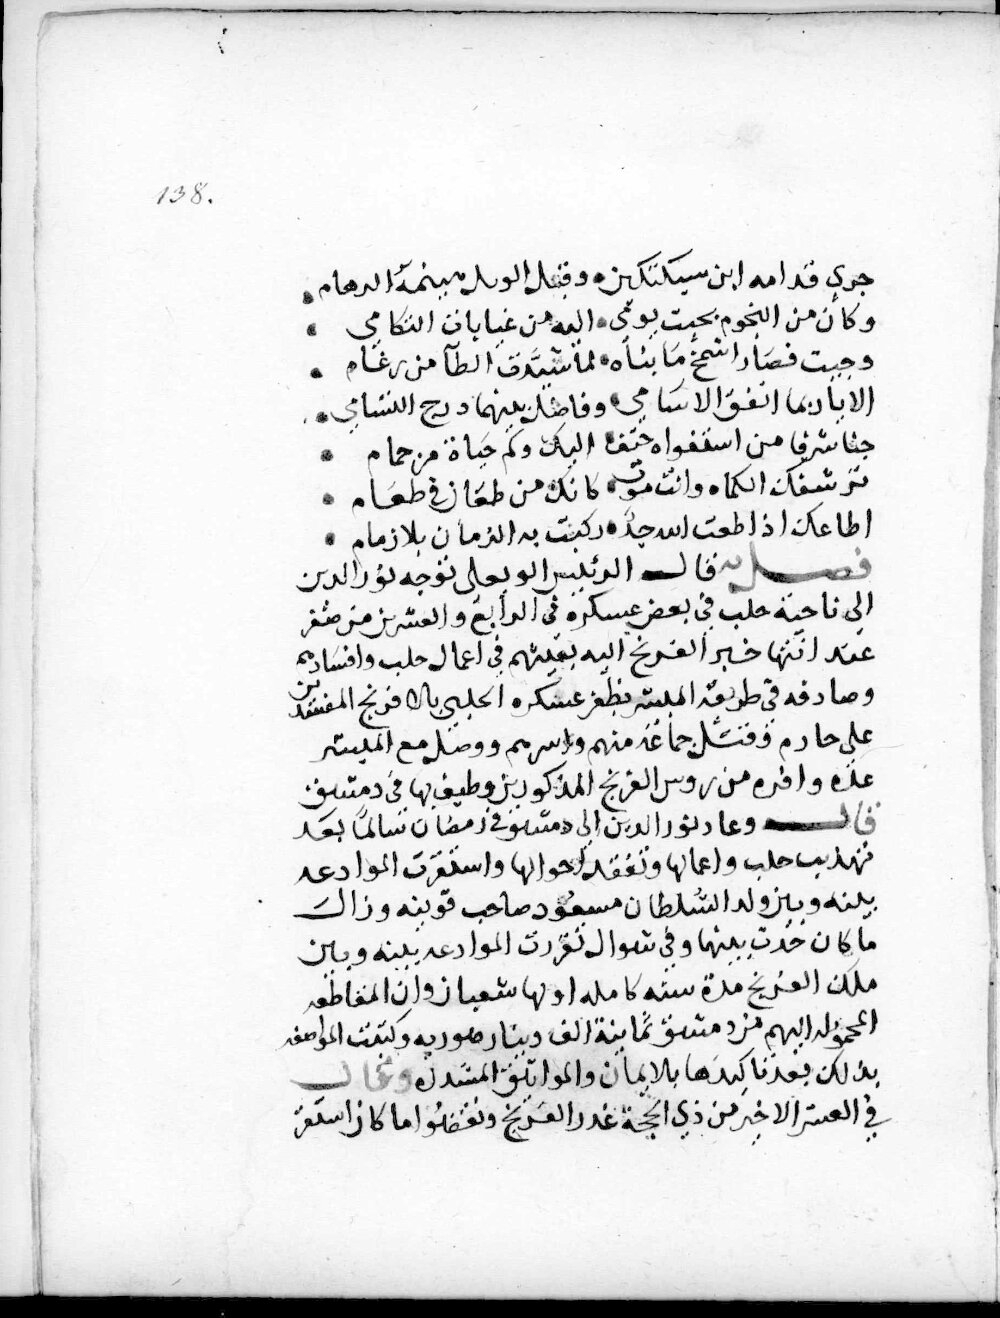 138.
جري قدامه ابن سبكتكين • وقبل الوبل هينمة الرهام •
وكان من النجوم بحيث يومي • اليه من غيابات التكامي •
وجيت فصار اشمخ ما بناه • لما شيدت الطآ من رغام •
الا يا ربما اتفق الاسامي • وفاضل بينهما درج التسامي •
حتفا اليك وكم حياة من حمام •
ترشفك الكماه وانت موت • كانك من طعان في طعام •
اطاعك اذ اطعت الله جد • ركبت به الزمان بلا زمام •
فصل قال الرئيس ابو يعلى توجه نور الدين
الي ناحية حلب في بعض عسكره في الرابع والعشرين من صفر
عند انتها خبر الفرنج اليه بعيثهم في اعمال حلب وافسادهم
وصادفه في طريقه المبشر بظفر عسكره الحلبي بالافرنج المفسدين
علي حارم وقتل جماعة منهم واسرهم ووصل مع المبشر
عده وافره من روس الفرنج المذكورين وطيف بها في دمشق
قال وعاد نور الدين الي دمشق في رمضان سالما بعد
تهذيب حلب واعمالها وتفقد احوالها واستقرت الموادعه
بينه وبين ولد السلطان مسعود صاحب قونيه وزال
ما كان حدث بينهما وفي شوال تقررت الموادعه بينه وبين
ملك الفرنج مدة سنه كامله اولها شعبان وان المقاطعه
المحموله اليهم من دمشق ثمانية الف دينار صوريه وكتبت المواصفه
بذلك بعد تاكيدها بالايمان والمواثيق المشدده وقال
في العشر الاخير من ذي الحجة غدر الفرنج ونقضوا ما كان استقر